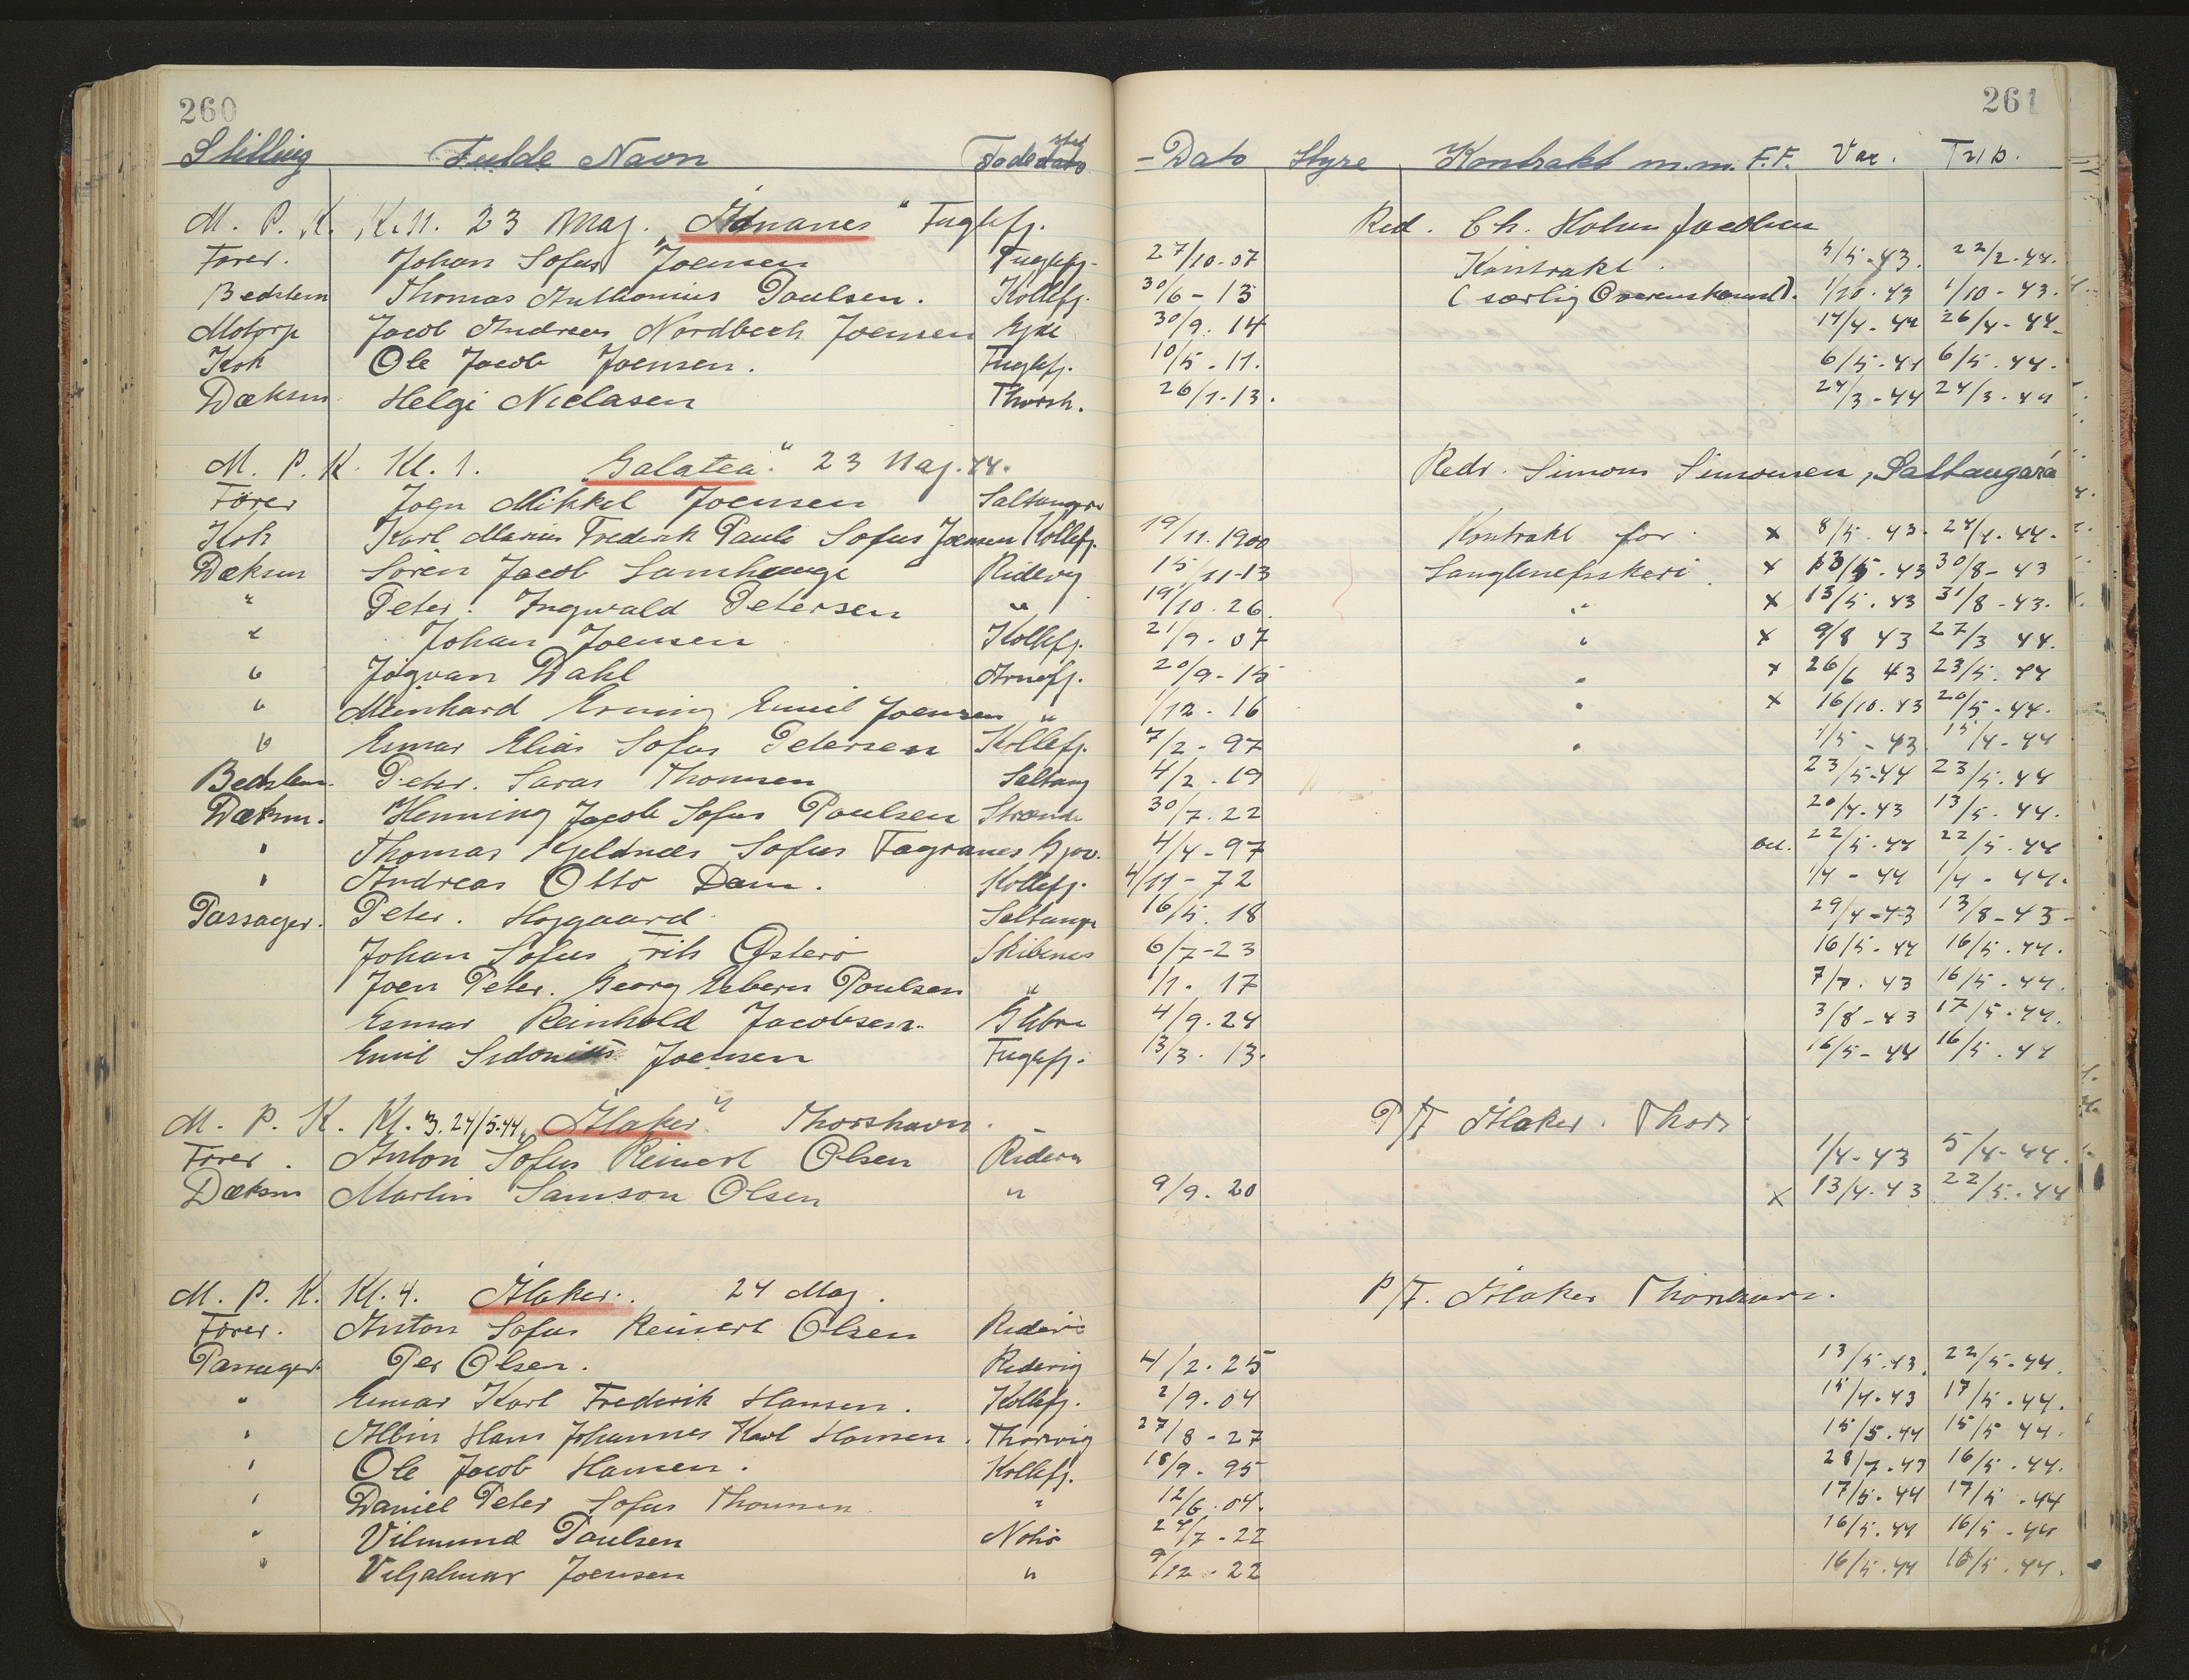 260
261
Stilling Fulde Navn Føde sted - Dato Hyre Kontrakt m.m. F.F. Var. Tub.
M. P. K. Kl. 11. 23 Maj. „Idnanes“ Fuglefj. Red. Ch. Holm Jacobsen
Fører. Johan Sofus Joensen Fuglefj. 27/10-07 Kontrakt. 5/5-43. 22/2-44.
Bedstem Thomas Anthonius Poulsen. Kollefj. 30/6-13 (særlig Overenskomst). 1/10-43 1/10-43.
Motorp Jacob Andreas Nordbech Joensen Ejde 30/9.14 14/4-44 26/4-44
Kok Ole Jacob Joensen. Fuglefj. 10/5.11. 6/5-44 6/5.44.
Dæksm Helgi Niclasen Thorsh. 26/1.13. 24/3-44 24/3-44
M. P. K. Kl. 1. „Galatea“ 23 Maj. 44. Redr. Simon Simonsen, Saltangará
Fører Joen Mikkel Joensen Saltangrá
Kok Karl Marius Frederik Paula Sofus Joensen Kollefj. 19/11.1900 Kontrakt for x 8/5.43. 24/4.44.
Dæksm Søren Jacob Samhunge Ridevig 15/11-13 Langlinefiskeri x 13/5.43 30/8-43
" Peter. Ingvald Petersen " 19/10.26. " x 13/5.43 31/8-43.
" Johan Joensen Kollefj. 21/9-07 " x 9/8 43 27/3 44.
" Jógvan Dahl Arnefj. 20/9-15 " x 26/6 43 23/5.44
" Meinhard Erning Emil Joensen " /12-16 " x 16/10.43 20/5-44.
" Eimar Elias Sofus Petersen Kollefj. 7/2-97 " 1/5-43. 15/4-44
Bedstem. Peter. Saras Thomsen Saltang 4/2.19 23/5-44 23/5.44
Dæksm. Henning Jacob Sofus Poulsen Strænd 30/7.22 20/4-43 13/5.44.
" Thomas Kjeldnæs Sofus Fagranes Gjov. 4/4-97 22/5.44 22/5.44
" Andreas Otto Dam. Kollefj. 4/11-72 1/4-44 1/4-44.
Passager. Peter. Højgaard Saltang 16/5.18 29/4-43 13/8-43
Johan Sofus Frits Østerø Skibenes 6/7-23 16/5.44 16/5.44.
Joen Peter. Georg Esbern Poulsen " 1/1.17 7/7.43 16/5.44.
Eimar Reinhold Jacobsen. Glibre 4/9.24 3/8-43 17/5.44.
Emil Sidonius Joensen Fuglefj. 13/3.13. 16/5-44 16/5.44
M. P. K. Kl. 3. 24/5.44. „Hlaker“ Thorshavn. P/F Hlaker. Thors.
Fører. Anton Sofus Reinert Olsen Ridevi 1/4-43 5/4-44.
Dæksm Martin Samson Olsen " 9/9.20 x 13/4.43 22/5.44
M. P. K. Kl. 4. Hlaker. 24 Maj. P/F. Hlaker Thorshavn.
Fører. Anton Sofus Reinert Olsen Ridevi
Passager. Per Olsen. Ridevig 4/2.25 13/5.43. 22/5-44.
" Eimar Karl Frederik Hansen. Kollefj. 2/9.04 15/4-43 17/5.44.
" Albin Hans Johannes Karl Hansen. Thorsvig 27/8-27 15/5.44 15/5 44.
" Ole Jacob Hansen. Kollefj. 18/9.95 28/7.43 16/5.44.
" Daniel Peter Sofus Thomsen " 12/6.04. 17/5.44 17/5.44
" Vilmund Poulsen Nolsø 24/7-22 16/5.44 16/5-44
" Viljalmar Joensen " 9/12.22 16/5.44 16/5.44.